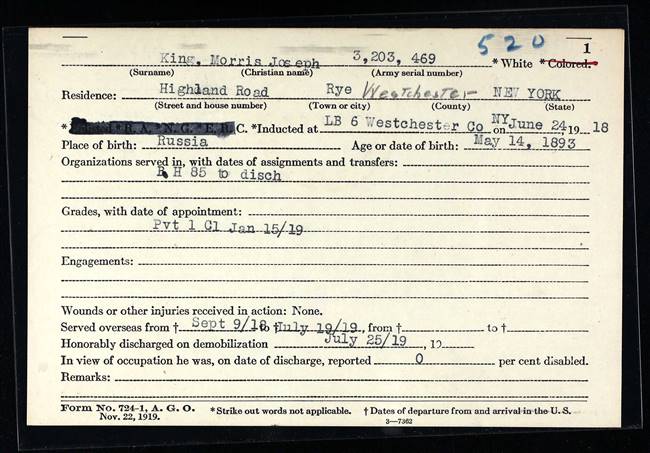 520 1
King, Morris Joseph 3,203,469 * White * Colored.
(Surname) (Christian name) (Army serial number)
Residence: Highland Road Rye Westchester NEW YORK
(Street and house number) (Town or city) (County) (State)
* R. A. * N. G. * E. R. C. *Inducted at LB 6 Westchester Co NY on June 24, 19 18
Place of birth: Russia Age or date of birth: May 14, 1893
Organizations served in, with dates of assignments and transfers:
B H 85 to disch
Grades, with date of appointment:
Pvt 1 Cl Jan 15/19
Engagements:
Wounds or other injuries received in action: None.
Served overseas from † Sept 9/18 to † July 19/19, from † to †
Honorably discharged on demobilization July 25/19, 19
In view of occupation he was, on date of discharge, reported 0 per cent disabled.
Remarks:
Form No. 724-1, A. G. O. *Strike out words not applicable. † Dates of departure from and arrival in the U. S.
Nov. 22, 1919. 3—7362